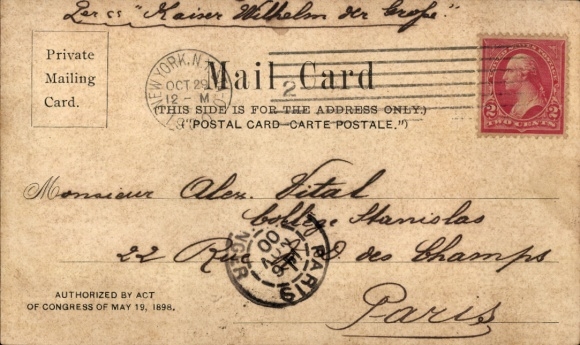 Per ss "Kaiser Wilhelm der Große".
Private
Mailing
Card.
NEW YORK, N.Y.
OCT 29
12 - M
2
Mail Card
(THIS SIDE IS FOR THE ADDRESS ONLY.)
("POSTAL CARD-CARTE POSTALE.")
2 2
TWO CENTS
Monsieur Alex. Vital
Collège Stanislas
22 Rue N. D. des Champs
Paris
PARIS
00
AUTHORIZED BY ACT
OF CONGRESS OF MAY 19, 1898.